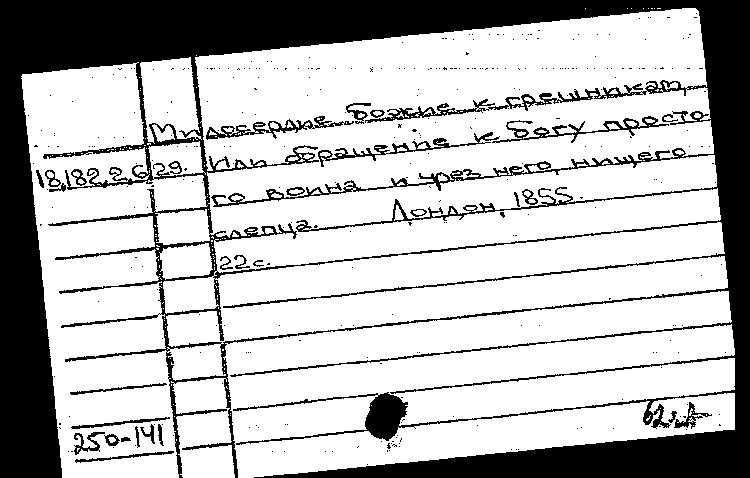 Милосердие божие к грешникам,
18.182.2.629. Или обращение к богу просто
го воина и чрез него, нищего
слепца. Лондон, 1855.
22 с.
250-141